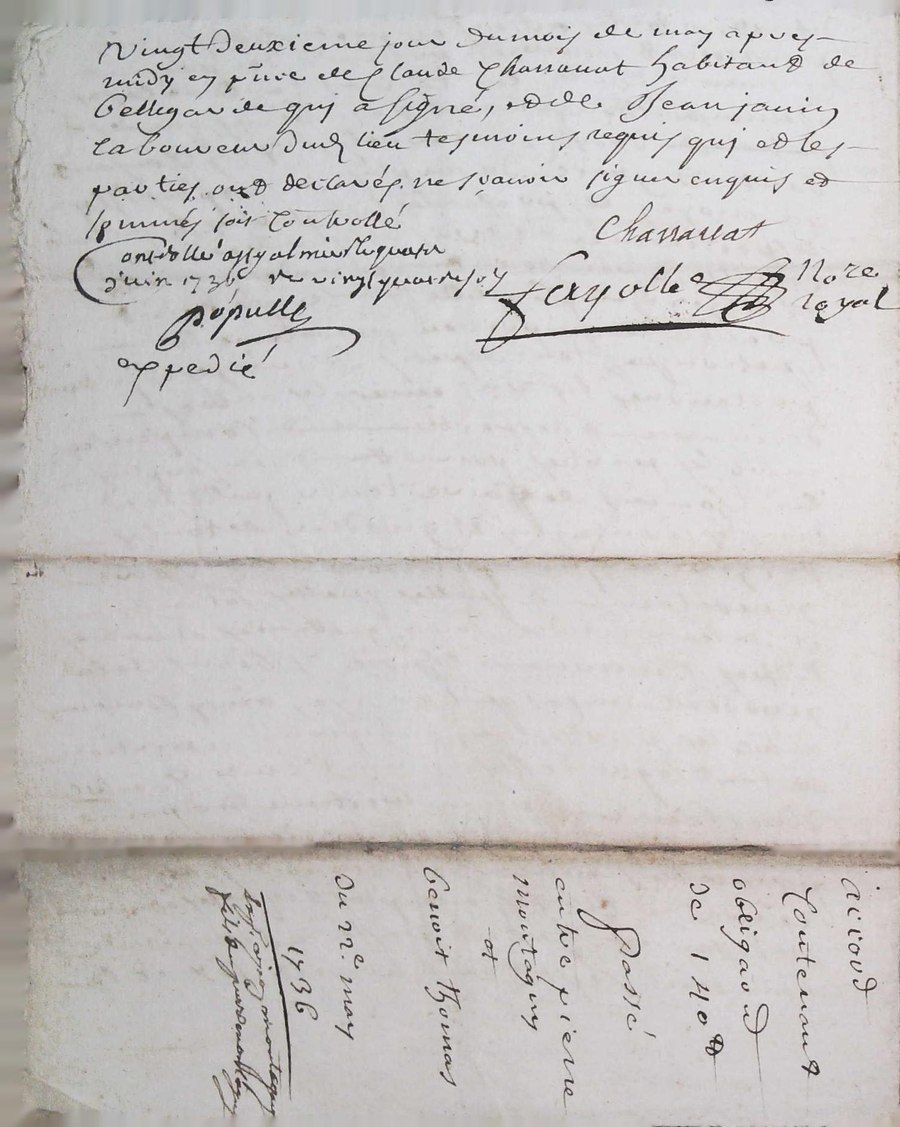 Vingt deuxieme jour du mois de may apres
midy en pñce de Claude Chassanat habitand de
bellegarde qui a signé, et de Jean janin
laboureur dud lieu tesmoins requis qui et les
parties ond declarés ne scavoir signer enquis et
sommés soit Controllé
Chassanat
juin 1736
Fayolle Nore
royal
pópulle
expedié
accord
Contenant
obligaõn
de 140 ₶
passé
entre pierre
montagny
et
benoit thomas
du 22.e may
1736